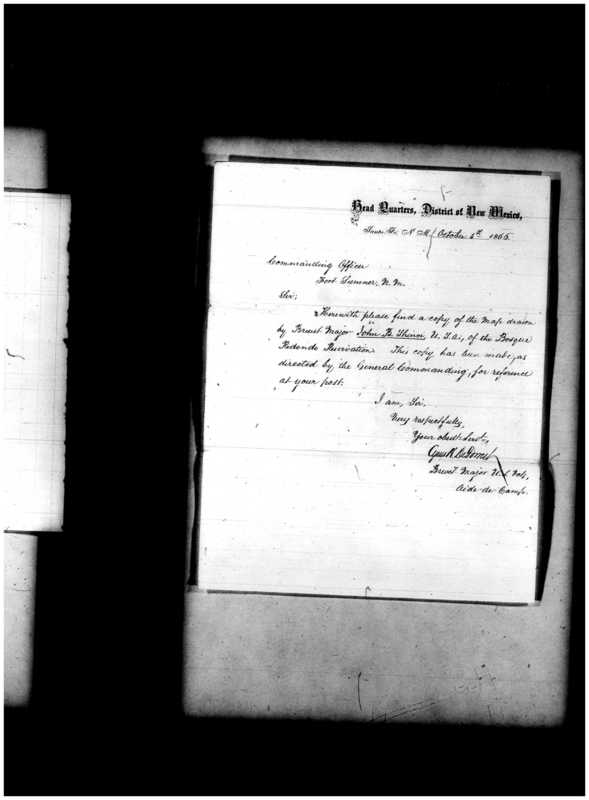 Head Quarters, District of New Mexico,
Santa Fe, N. M. October 5th 1865.
Commanding Officer
Fort Sumner, N. M.
Sir:
Herewith please find a copy of the map drawn
by Brevet Major John B. Shinn, U. S. A., of the Bosque
Redondo Reservation. This copy has been made, as
directed by the General Commanding, for reference
at your post.
I am, Sir,
Very respectfully,
Your obdt. Servt.,
Brevet Major U. S. Vols,
Aide-de-Camp.